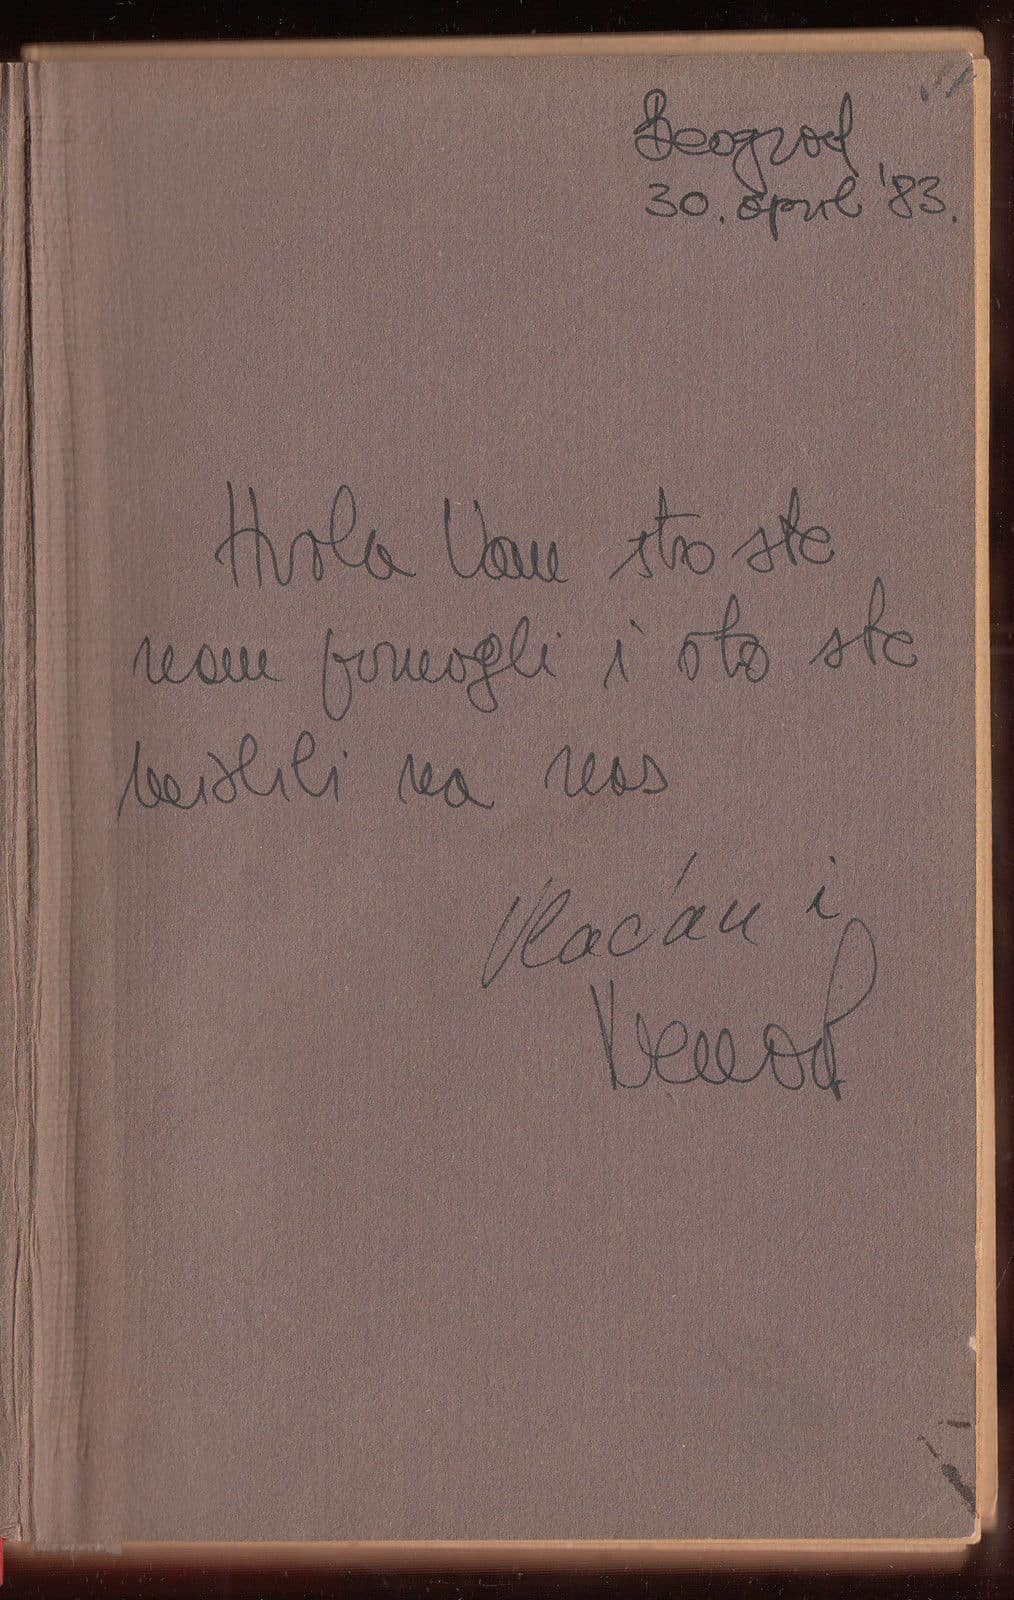 Beograd
30. april '83.
Hvala Vam što ste
nam pomogli i što ste
mislili na nas
i
Nenad